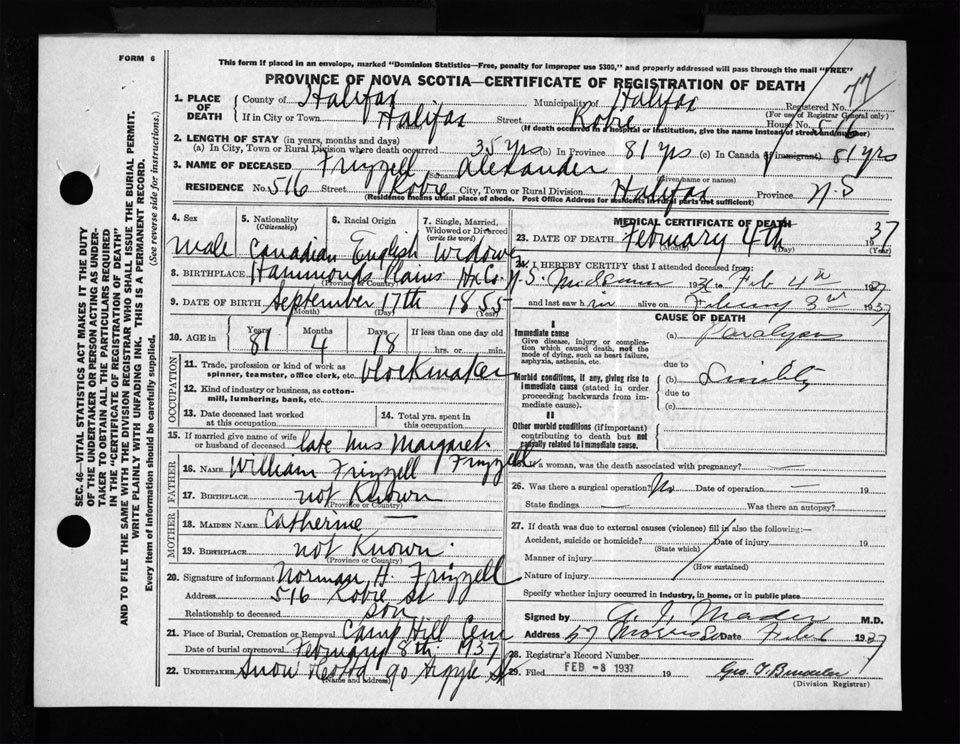 FORM 6
This form if placed in an envelope, marked "Dominion Statistics—Free, penalty for improper use $300," and properly addressed will pass through the mail "FREE"
PROVINCE OF NOVA SCOTIA—CERTIFICATE OF REGISTRATION OF DEATH
1. PLACE OF DEATH County of Halifax Municipality of Halifax Registered No. 77
(For use of Registrar General only)
If in City or Town Halifax Street Robie House No. 516
(Name) (If death occurred in a hospital or institution, give the name instead of street and number)
2. LENGTH OF STAY (in years, months and days)
(a) In City, Town or Rural Division where death occurred 35 yrs (b) In Province 81 yrs (c) In Canada (if immigrant) 81 yrs
3. NAME OF DECEASED Frizzell Alexander
(Surname) (Given name or names)
RESIDENCE No. 516 Street Robie City, Town or Rural Division Halifax Province N.S
(Residence means usual place of abode. Post Office Address for residents in rural parts not sufficient)
4. Sex male
5. Nationality (Citizenship) Canadian
6. Racial Origin English
7. Single, Married, Widowed or Divorced (write the word) Widower
8. BIRTHPLACE Hammonds Plains Hx Co. N.S.
(Province or Country)
9. DATE OF BIRTH September 17th 1855
(Month) (Day) (Year)
10. AGE in Years 81 Months 4 Days 18 If less than one day old hrs. or min.
OCCUPATION
11. Trade, profession or kind of work as spinner, teamster, office clerk, etc. blockmaker
12. Kind of industry or business, as cotton-mill, lumbering, bank, etc.
13. Date deceased last worked at this occupation
14. Total yrs. spent in this occupation
15. If married give name of wife or husband of deceased late Mrs Margaret Frizzell
FATHER
16. NAME William Frizzell
17. BIRTHPLACE not Known
(Province or Country)
MOTHER
18. MAIDEN NAME Catherine —
19. BIRTHPLACE not Known.
(Province or Country)
20. Signature of informant Norman H. Frizzell
Address 516 Robie St
Relationship to deceased son
21. Place of Burial, Cremation or Removal Camp Hill Cem
Date of burial or removal February 8th 1937
22. UNDERTAKER Snow & Co Ltd 90 Argyle St
(Name and Address)
MEDICAL CERTIFICATE OF DEATH
23. DATE OF DEATH February 4th 1937
(Month) (Day) (Year)
24. I HEREBY CERTIFY that I attended deceased from
193 to Feb 4th 1937
and last saw h im alive on February 3rd 1937
CAUSE OF DEATH
I
Immediate cause
Give disease, injury or complication which caused death, not the mode of dying, such as heart failure, asphyxia, asthenia, etc.
(a) Paralysis
due to
Morbid conditions, if any, giving rise to immediate cause (stated in order proceeding backwards from immediate cause)
(b) Senility
due to
(c)
II
Other morbid conditions (if important) contributing to death but not causally related to immediate cause.
25. If a woman, was the death associated with pregnancy? —
26. Was there a surgical operation? No Date of operation — 19
State findings — Was there an autopsy?
27. If death was due to external causes (violence) fill in also the following:—
Accident, suicide or homicide? Date of injury 19
(State which)
Manner of injury
(How sustained)
Nature of injury
Specify whether injury occurred in Industry, in home, or in public place
Signed by A. I. Mader M.D.
Address 57 Morris St Date Feb 6 1937
28. Registrar's Record Number
29. Filed FEB -8 1937 19
(Division Registrar)
SEC. 46—VITAL STATISTICS ACT MAKES IT THE DUTY
OF THE UNDERTAKER OR PERSON ACTING AS UNDERTAKER TO OBTAIN ALL THE PARTICULARS REQUIRED
IN THE "CERTIFICATE OF REGISTRATION OF DEATH"
AND TO FILE THE SAME WITH THE DIVISION REGISTRAR WHO SHALL ISSUE THE BURIAL PERMIT.
WRITE PLAINLY WITH UNFADING INK. THIS IS A PERMANENT RECORD.
Every item of Information should be carefully supplied. (See reverse side for instructions.)